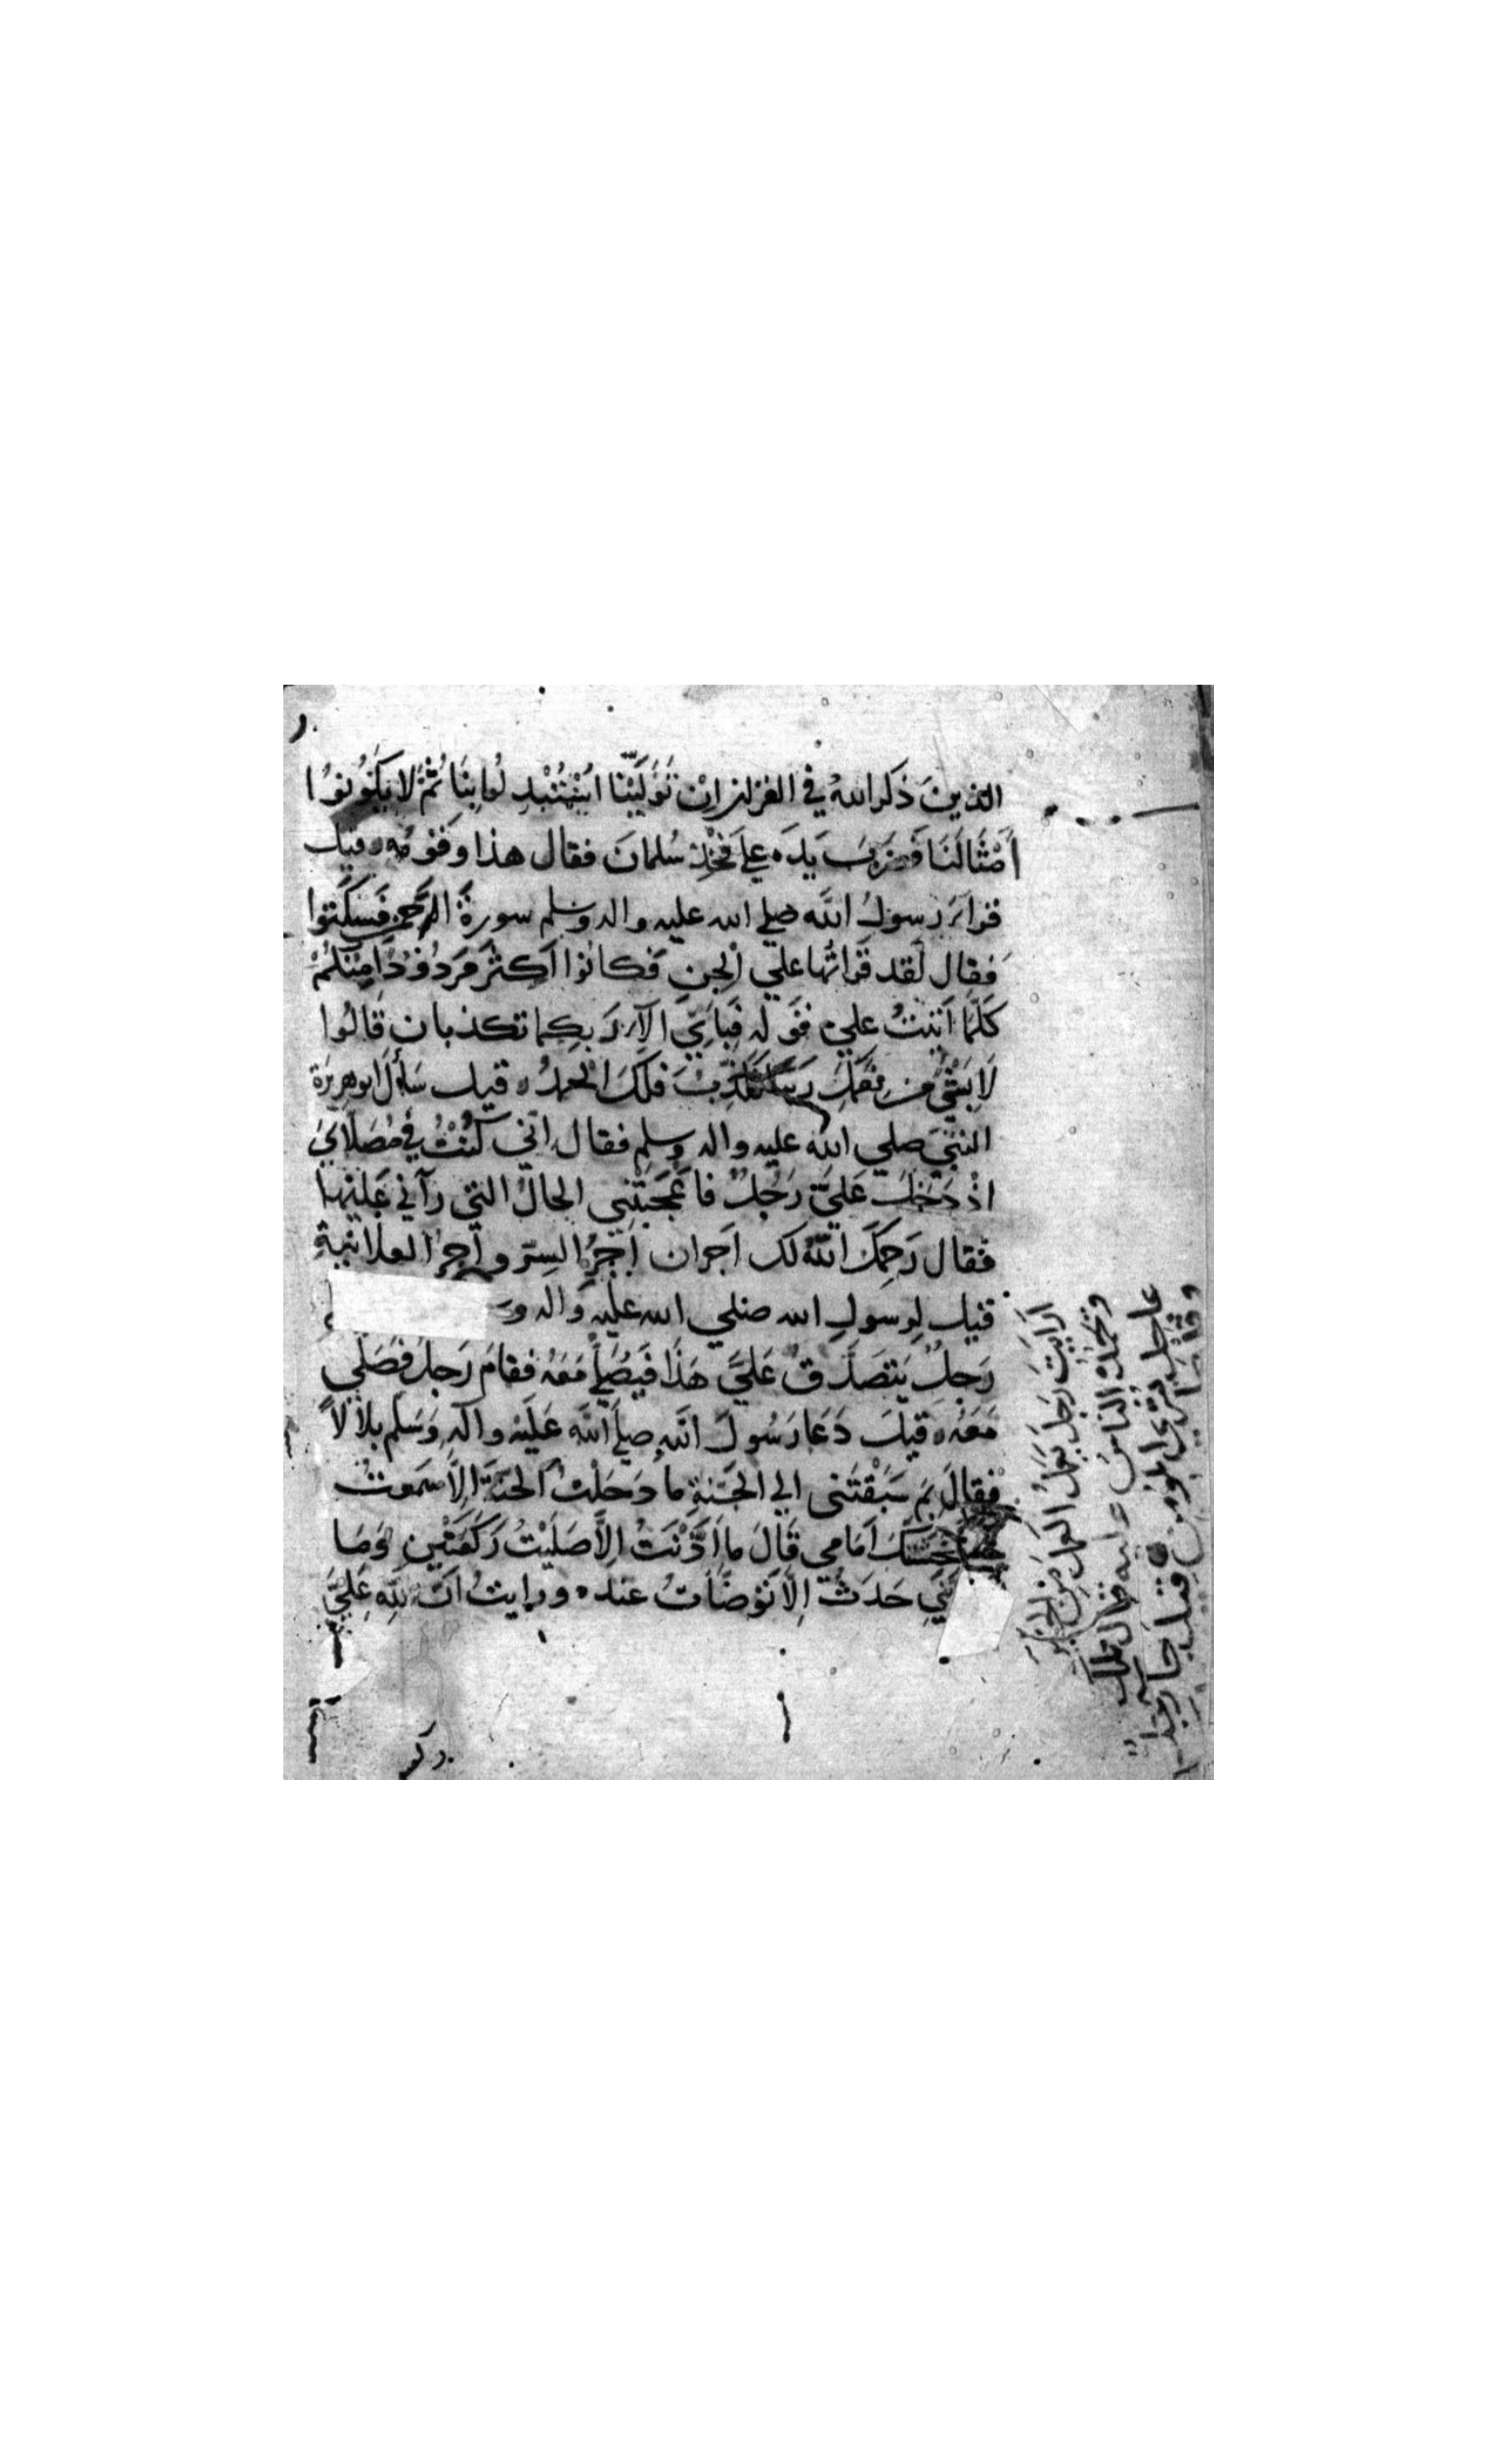 الذينَ ذكر اللهُ في القران اِن تَوَلَّيْنَا اُسْتُبْدِلُوا بِنَا ثُمَّ لا يَكُونُوا
أَمْثَالَنَا فَضَرَبَ يَدَه عَلَى فَخِذِ سُلمانَ فقال هذا وَقَوْمُه ه قيل
قرا رسولُ اللَّه صلى الله عليه واله وسلم سورةَ الرَّحمن فَسَكَتُوا
فقال لَقد قَرَاتُهَا عَلى الجن فَكَانُوا اَكثَرَ مَردُودًا مِنْكُمْ
كُلَّمَا اَتيتُ على قَولِه فَبِاَيِّ الآءِ رَبِكما تكذبان قَالُوا
لَا بِشَيْءٍ مِن نِعَمِكَ رَبَّنَا نُكَذِّبُ فَلَكَ الْحَمْدُ ه قيل سَأَلَ ابو هريرَة
النبيّ صلى اللهُ عليه واله وسلم فقال اِنّي كُنْتُ في مُصَلَّايَ
اذْ دَخَلَ عَليَّ رَجُلٌ فَاَعْجَبَتْنِي الحالُ التي رَآني عَليْهَا
فقال رَحِمَكَ اللَّهُ لك اَجران اَجْرُ السِرّ واَجرُ العلانيةِ
قيل لِرسولِ الله صلى الله عليه واله وَ
رَجلٌ يَتصَدَّقُ عَليَ هَذَا فَيُصَلّي مَعَهُ فقامَ رَجل فَصَلى
مَعَهُ ه قيلَ دَعَا رَسُولُ اللهِ صلى اللَّه عَليْه واله وَسَلم بلالًا
فقالَ بِمَ سَبَقْتَني الى الجَنةِ ما دَخَلْتُ الجنَّةَ اِلَّا سَمعتُ
خَشْخَشَتَكَ اَمَامي قَالَ ما اَذَّنْتُ اِلَّا صَلَيْتُ رَكعَتَيْنِ وَمَا
نِي حَدَثٌ اِلّا تَوَضَّأتُ عنده ورايتُ اَنَّ لِلّهِ عَليَّ
ركعـ
اَرَايْتَ رَجل يَعمَلُ العَمل مِن الخَير
وتحمَدُه الناسُ عليه فقال تلك
عاجل بُشْرى المؤمن ه قيل جا رجل